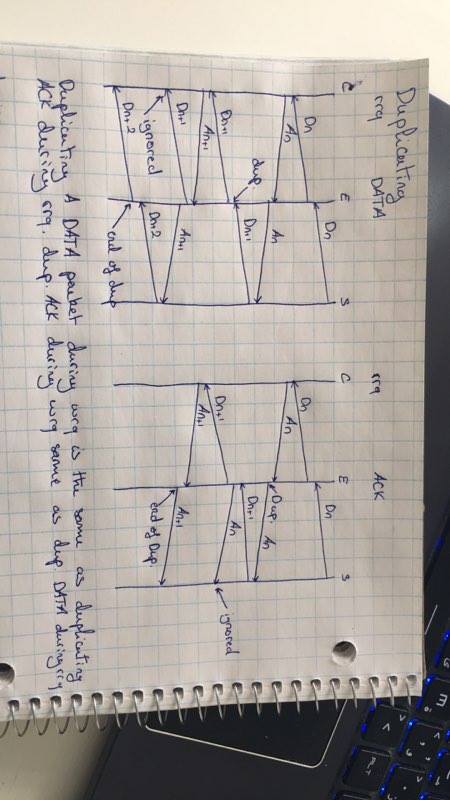 Duplicating
rrq DATA
C E S
Dn
Dn
An
An
dup.
Dn+1
Dn+1
An+1
Dn+1
An+1
ignored
Dn+2
Dn+2
end of dup
rrq ACK
C E S
Dn
Dn
An
Dup. An
Dn+1
Dn+1
An
An+1
ignored
An+1
end of Dup.
Duplicating A DATA packet during wrq is the same as duplicating
ACK during rrq. dup. ACK during wrq same as dup DATA during rrq